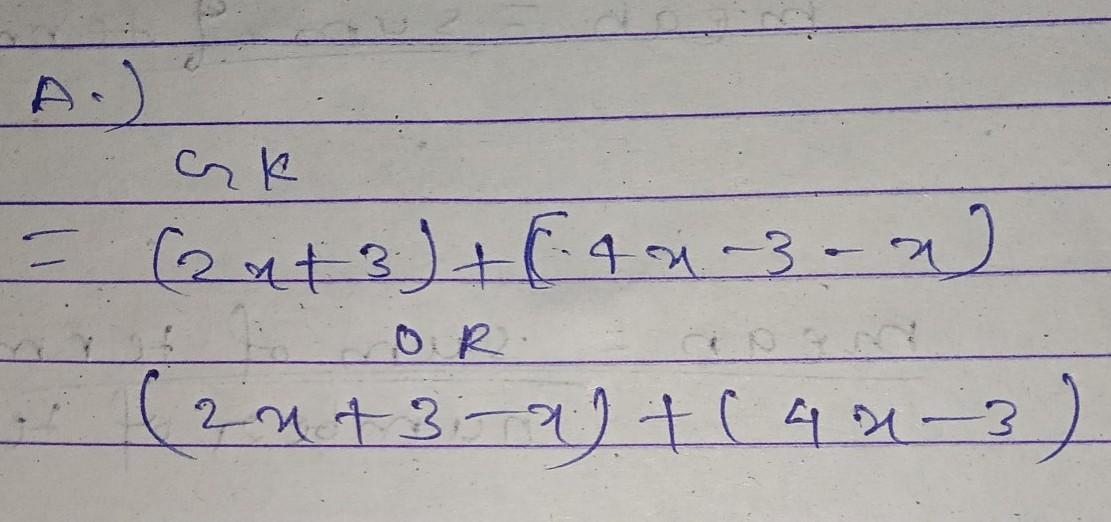 A.)
GK
= (2x+3)+(4x-3-x)
OR
(2x+3-x)+(4x-3)